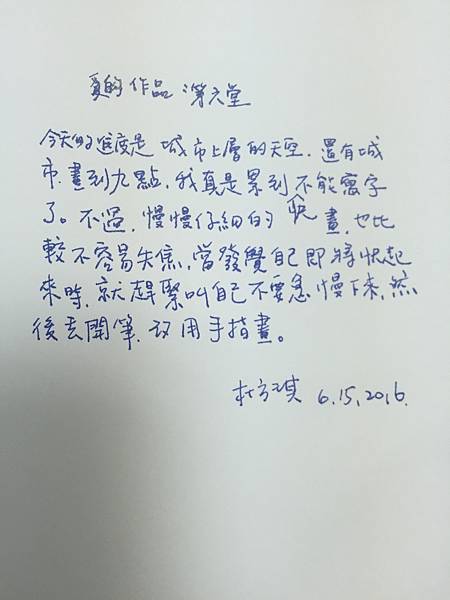 愛的作品:第六堂
今天的進度是城市上層的天空.還有城
市.畫到九點.我真是累到不能寫字
了。不過.慢慢仔細的快畫.也比
較不容易失焦.當發覺自己即將快起
來時.就趕緊叫自己不要急慢下來.然
後去開筆.改用手指畫。
杜方琪 6.15,2016.